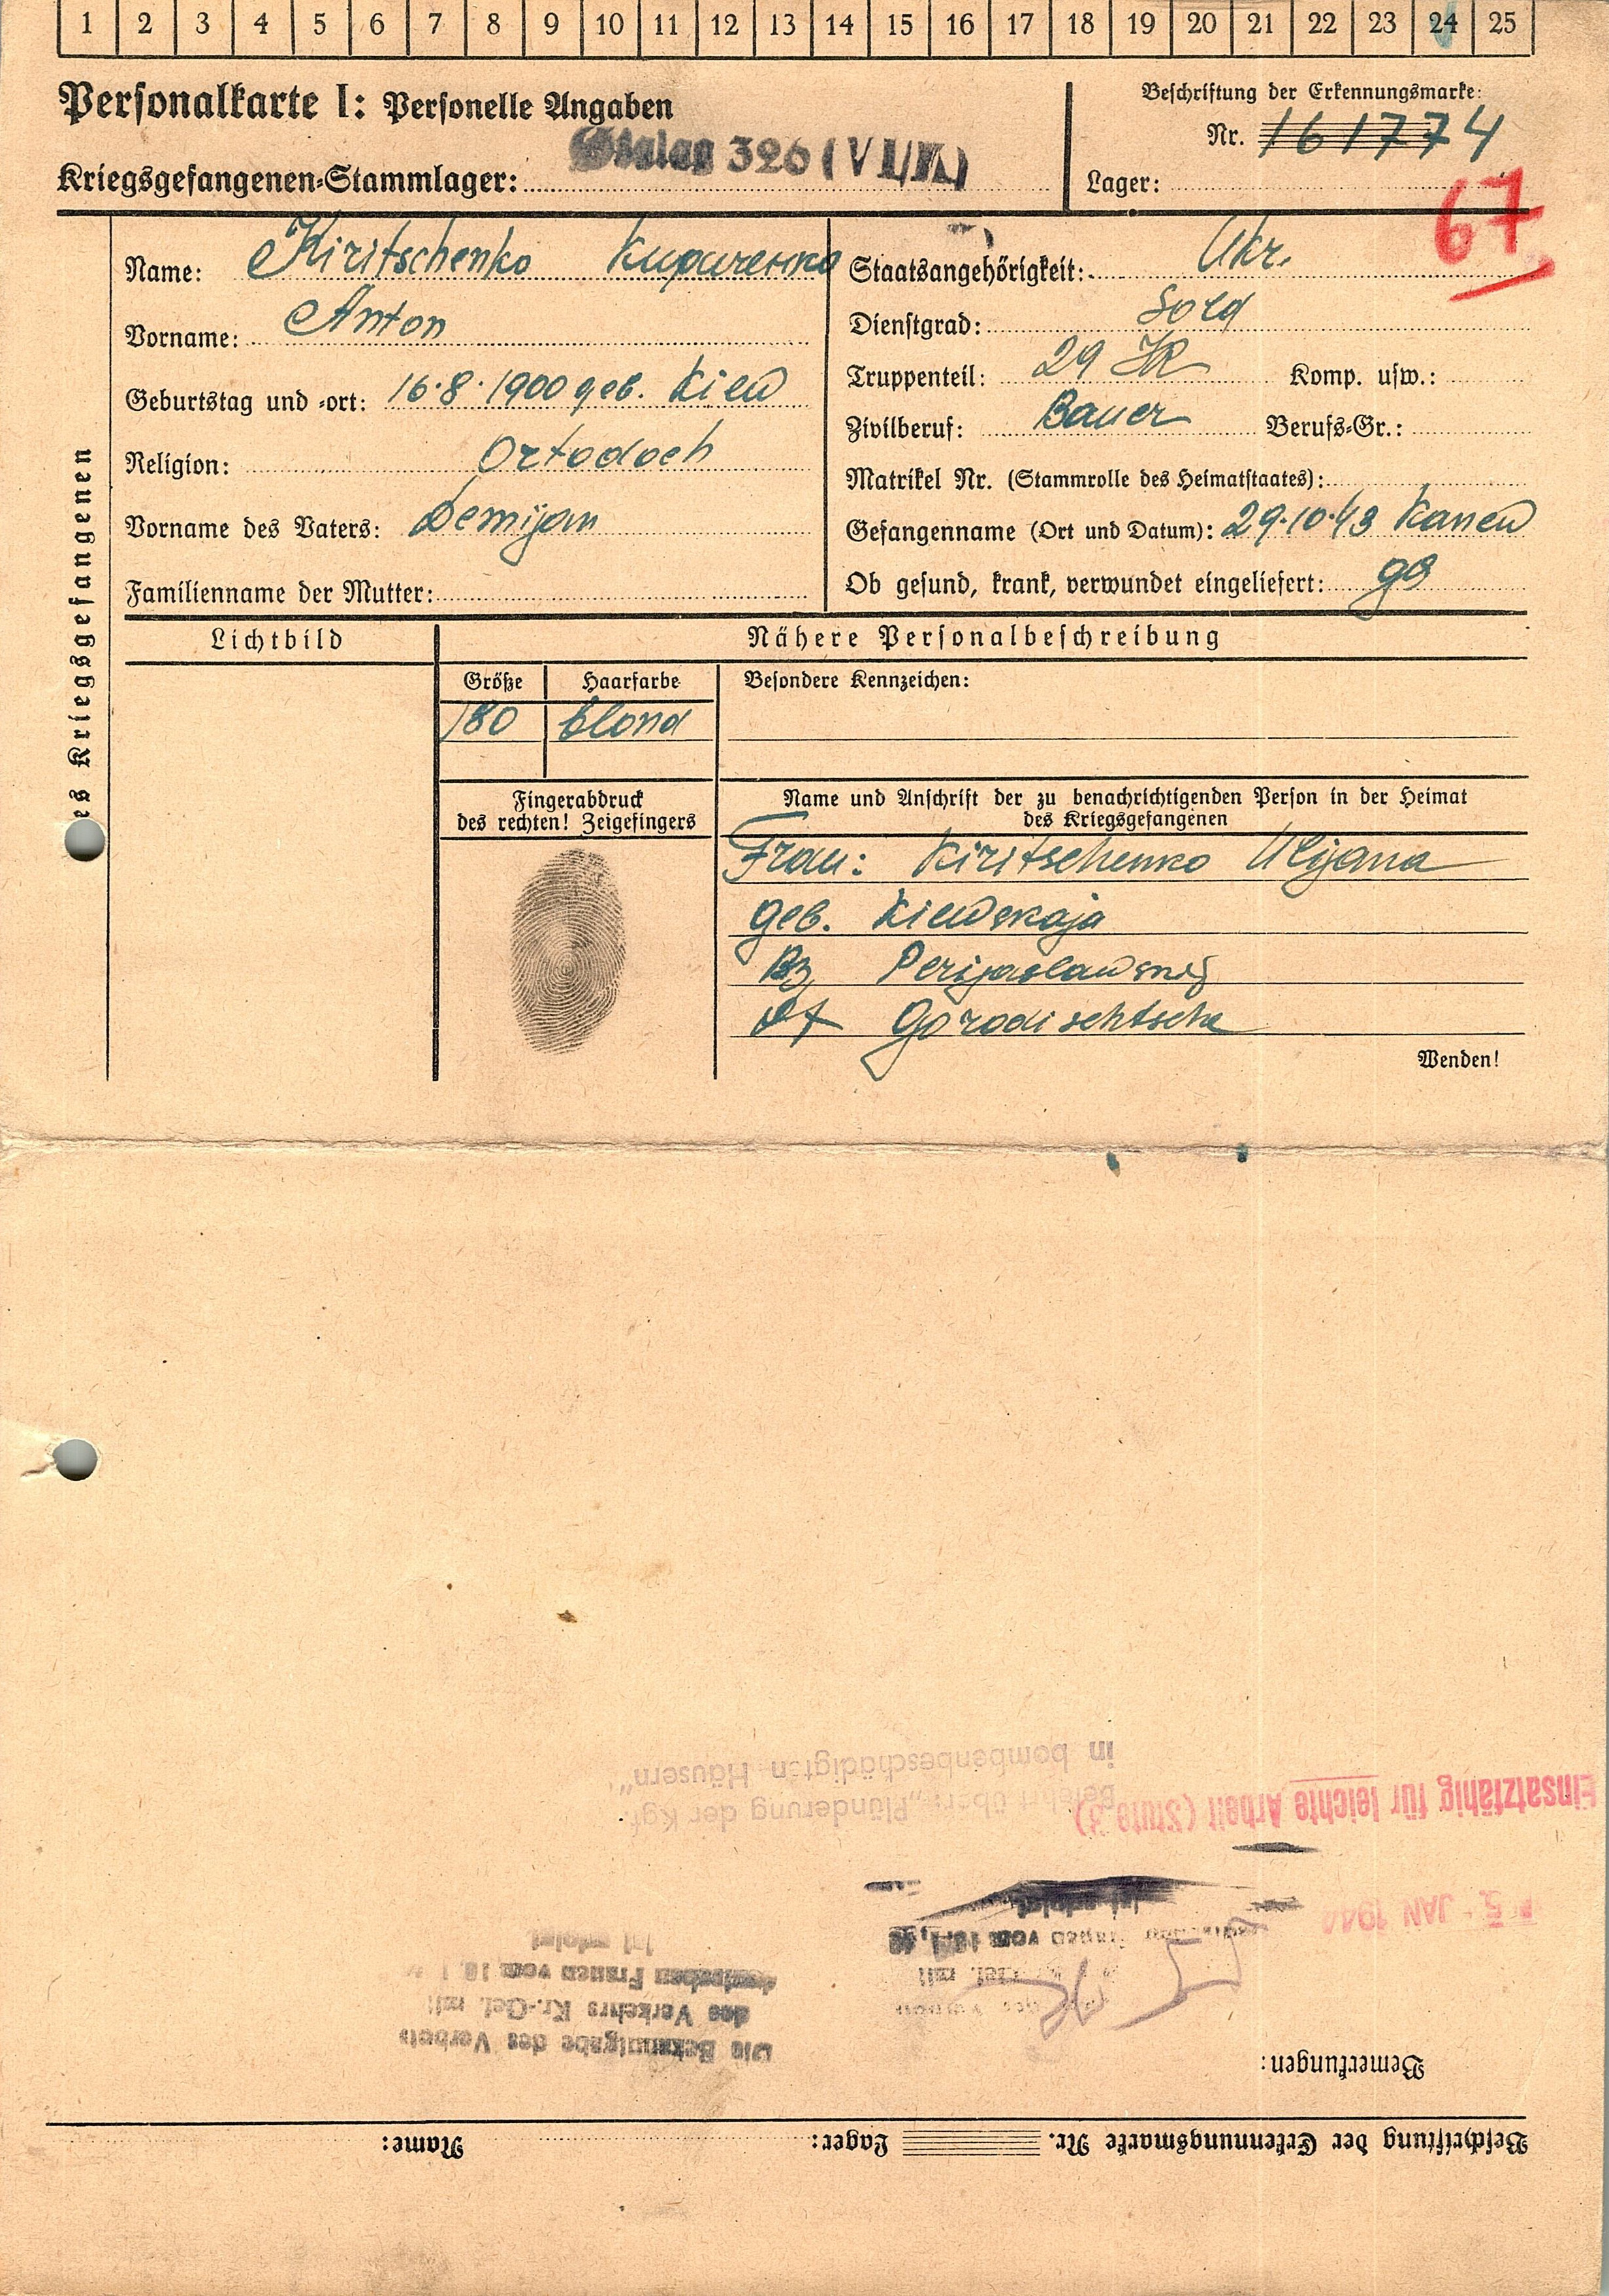 1 2 3 4 5 6 7 8 9 10 11 12 13 14 15 16 17 18 19 20 21 22 23 24 25
Personalkarte I: Personelle Angaben
Kriegsgefangenen-Stammlager: Stalag 326 (VI/K)
Beschriftung der Erkennungsmarke:
Nr. 161774
Lager:
67
es Kriegsgefangenen
Name: Kiritschenko Кириченко
Vorname: Anton
Geburtstag und -ort: 16.8.1900 geb. Kiew
Religion: Ortodoch
Vorname des Vaters: Demijan
Familienname der Mutter:
Staatsangehörigkeit: Ukr.
Dienstgrad: Sold
Truppenteil: 29 IR Komp. usw.:
Zivilberuf: Bauer Berufs-Gr.:
Matrikel Nr. (Stammrolle des Heimatstaates):
Gefangenname (Ort und Datum): 29.10.43 Kanew
Ob gesund, krank, verwundet eingeliefert: gs
Lichtbild
Nähere Personalbeschreibung
Größe Haarfarbe Besondere Kennzeichen:
180 blond
Fingerabdruck
des rechten! Zeigefingers
Name und Anschrift der zu benachrichtigenden Person in der Heimat
des Kriegsgefangenen
Frau: Kiritschenko Ulijana
geb. Kiewskaja
Bz Perijaslawskij
Gorodischtsche
Wenden!
Beschriftung der Erkennungsmarke Nr. Lager: Name:
Bemerkungen:
Die Bekanntgabe des Verbots
des Verkehrs Kr.-Gef. mit
deutschen Frauen vom 10.1.
ist erfolgt
5. JAN 1944
Einsatzfähig für leichte Arbeit (Stufe 3)
Belehrt über: "Plünderung der Kgf.
in bombenbeschädigten Häusern"